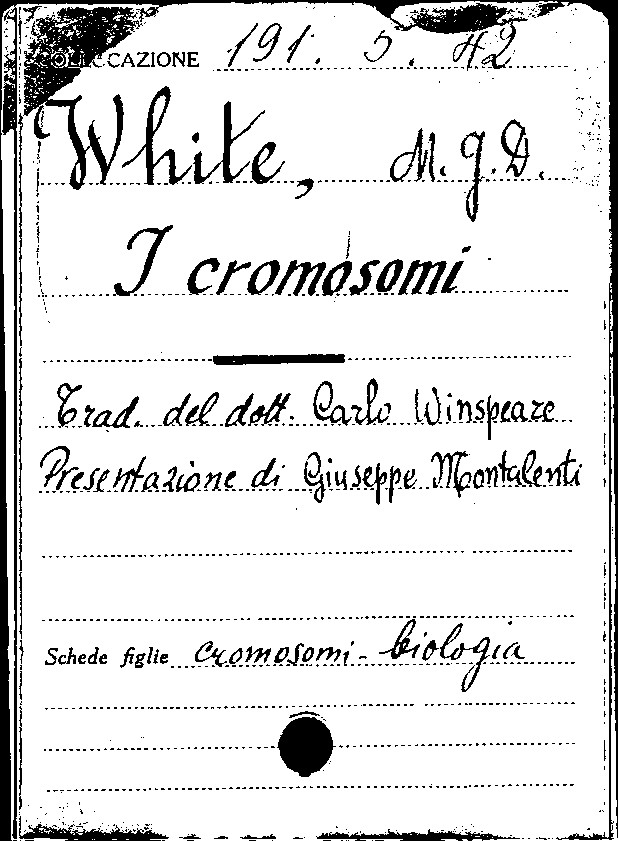 COLLOCAZIONE 191. 5. 42
White, M.J.D.
I cromosomi
Trad. del dott. Carlo Winspeare
Presentazione di Giuseppe Montalenti
Schede figlie cromosomi - biologia